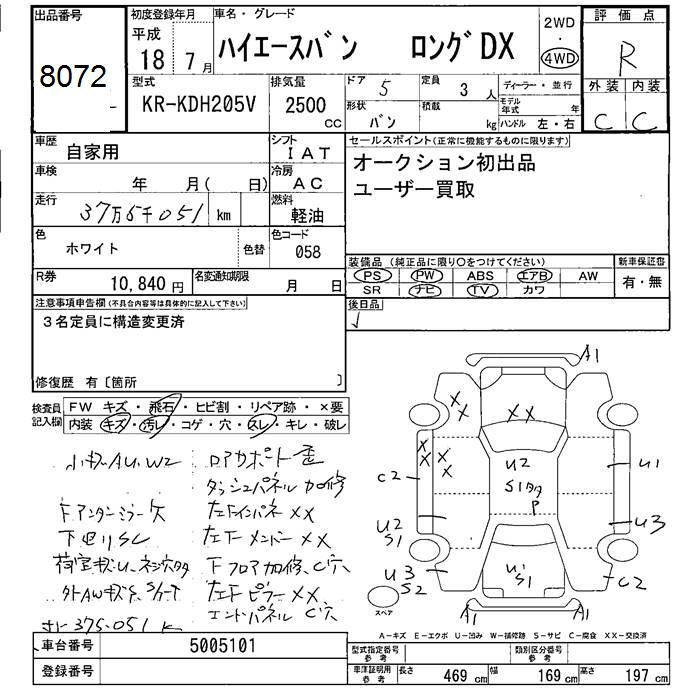 出品番号
8072
初度登録年月
平成
18 7月
車名・グレード
ハイエースバン ロングDX
2WD
・
4WD
評価点
R
外装 内装
C C
型式
KR-KDH205V
排気量
2500 CC
ドア 5
形状 バン
定員 3 人
積載 kg
ディーラー・並行
モデル年式 年
ハンドル 左・右
車歴
自家用
シフト
IAT
車検
年 月( 日)
冷房
AC
走行
37万5千051 km
燃料
軽油
色
ホワイト
色替
色コード
058
R券
10,840 円
名変通知期限
月 日
セールスポイント(正常に機能するものに限ります)
オークション初出品
ユーザー買取
装備品 (純正品に限り○をつけてください)
PS PW ABS エアB AW
SR ナビ TV カワ
新車保証書
有・無
後日品
注意事項申告欄(不具合内容等は具体的に記入して下さい)
3名定員に構造変更済
修復歴 有〔箇所 〕
検査員
記入欄
FW キズ・飛石・ヒビ割・リペア跡・×要
内装 キズ・汚レ・コゲ・穴・スレ・キレ・破レ
小キズAU.W2
ロアサポート歪
ダッシュパネル加修
下アンダーミラー欠
左右インパネ XX
下廻りSC
左下メンバー XX
下フロア加修、C穴
左下ピラー XX
エンドパネル C穴
375.051 K
A1
XX
XX
XX
XX
C2
U2
S1
U3
S2
U2
S1タタ
P
U1
S1
U1
U3
C2
A1
A1
スペア
A-キズ E-エクボ U-凹み W-補修跡 S-サビ C-腐食 XX-交換済
車台番号
5005101
登録番号
型式指定番号
参考
類別区分番号
参考
車庫証明用
参考
長さ 469 cm
幅 169 cm
高さ 197 cm